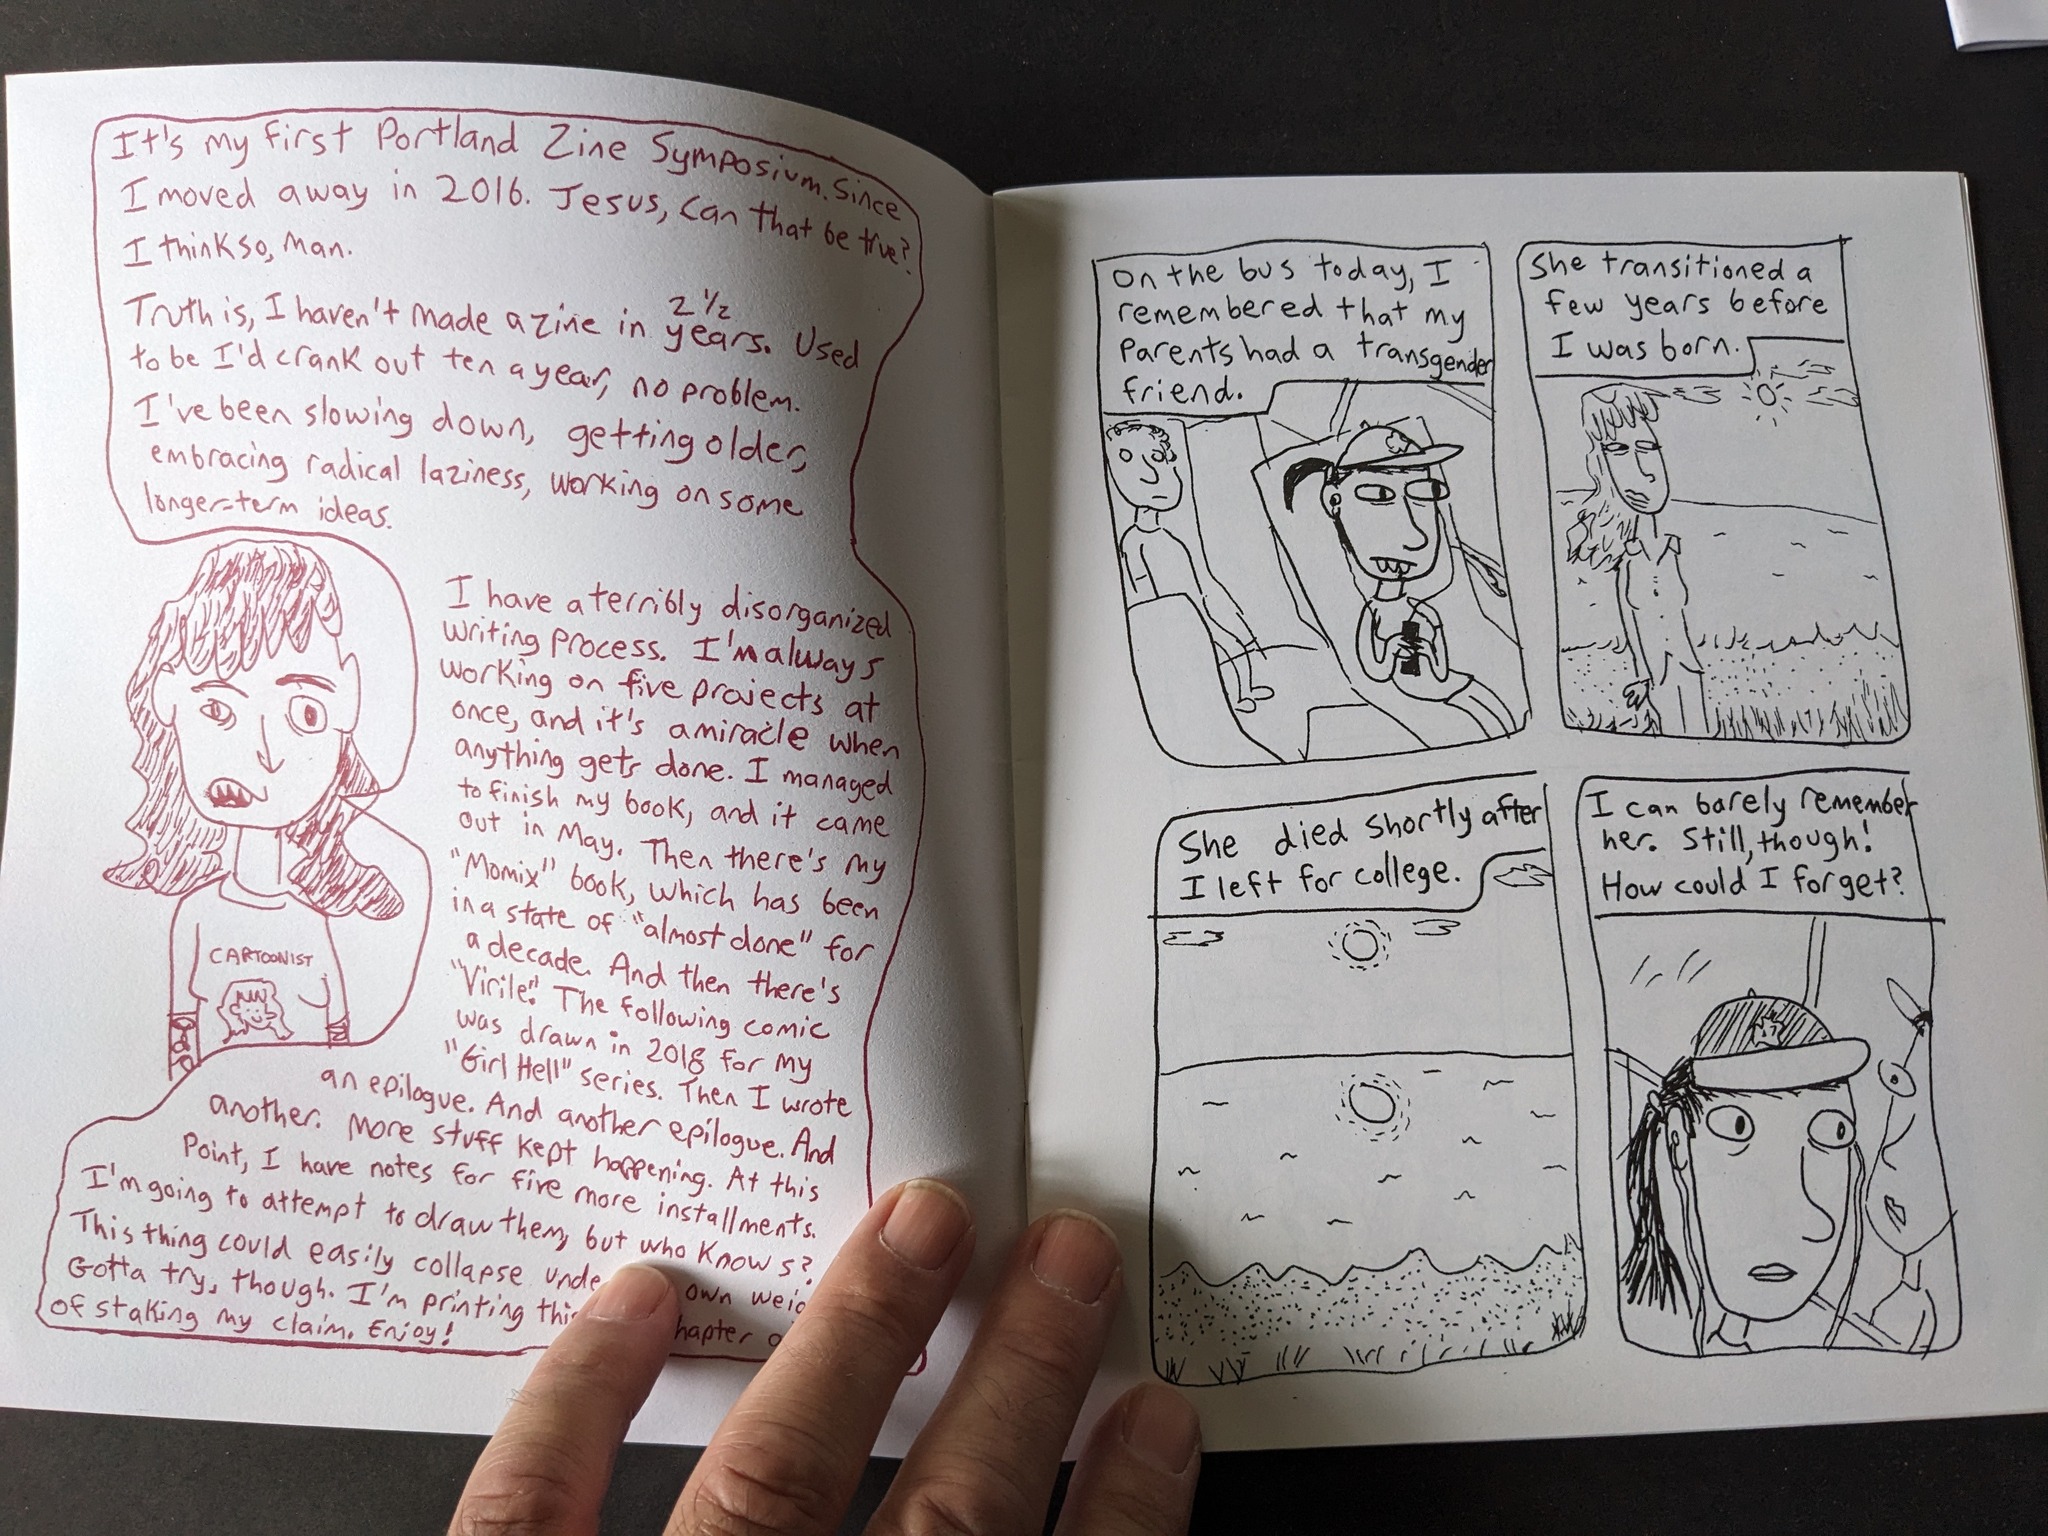 It's my first Portland Zine Symposium. Since
I moved away in 2016. Jesus, can that be true?
I think so, man.
Truth is, I haven't made a zine in 2 1/2 years. Used
to be I'd crank out ten a year, no problem.
I've been slowing down, getting older,
embracing radical laziness, working on some
longer-term ideas.
I have a terribly disorganized
writing process. I'm always
working on five projects at
once, and it's a miracle when
anything gets done. I managed
to finish my book, and it came
out in May. Then there's my
"Momix" book, which has been
in a state of "almost done" for
a decade. And then there's
"Virile". The following comic
was drawn in 2018 for my
"Girl Hell" series. Then I wrote
an epilogue. And another epilogue. And
another. More stuff kept happening. At this
point, I have notes for five more installments.
I'm going to attempt to draw them, but who knows?
This thing could easily collapse own
Gotta try, though. I'm printing this
of staking my claim. Enjoy!
CARTOONIST
On the bus today, I
remembered that my
parents had a transgender
friend.
She transitioned a
few years before
I was born.
She died shortly after
I left for college.
I can barely remember
her. Still, though!
How could I forget?